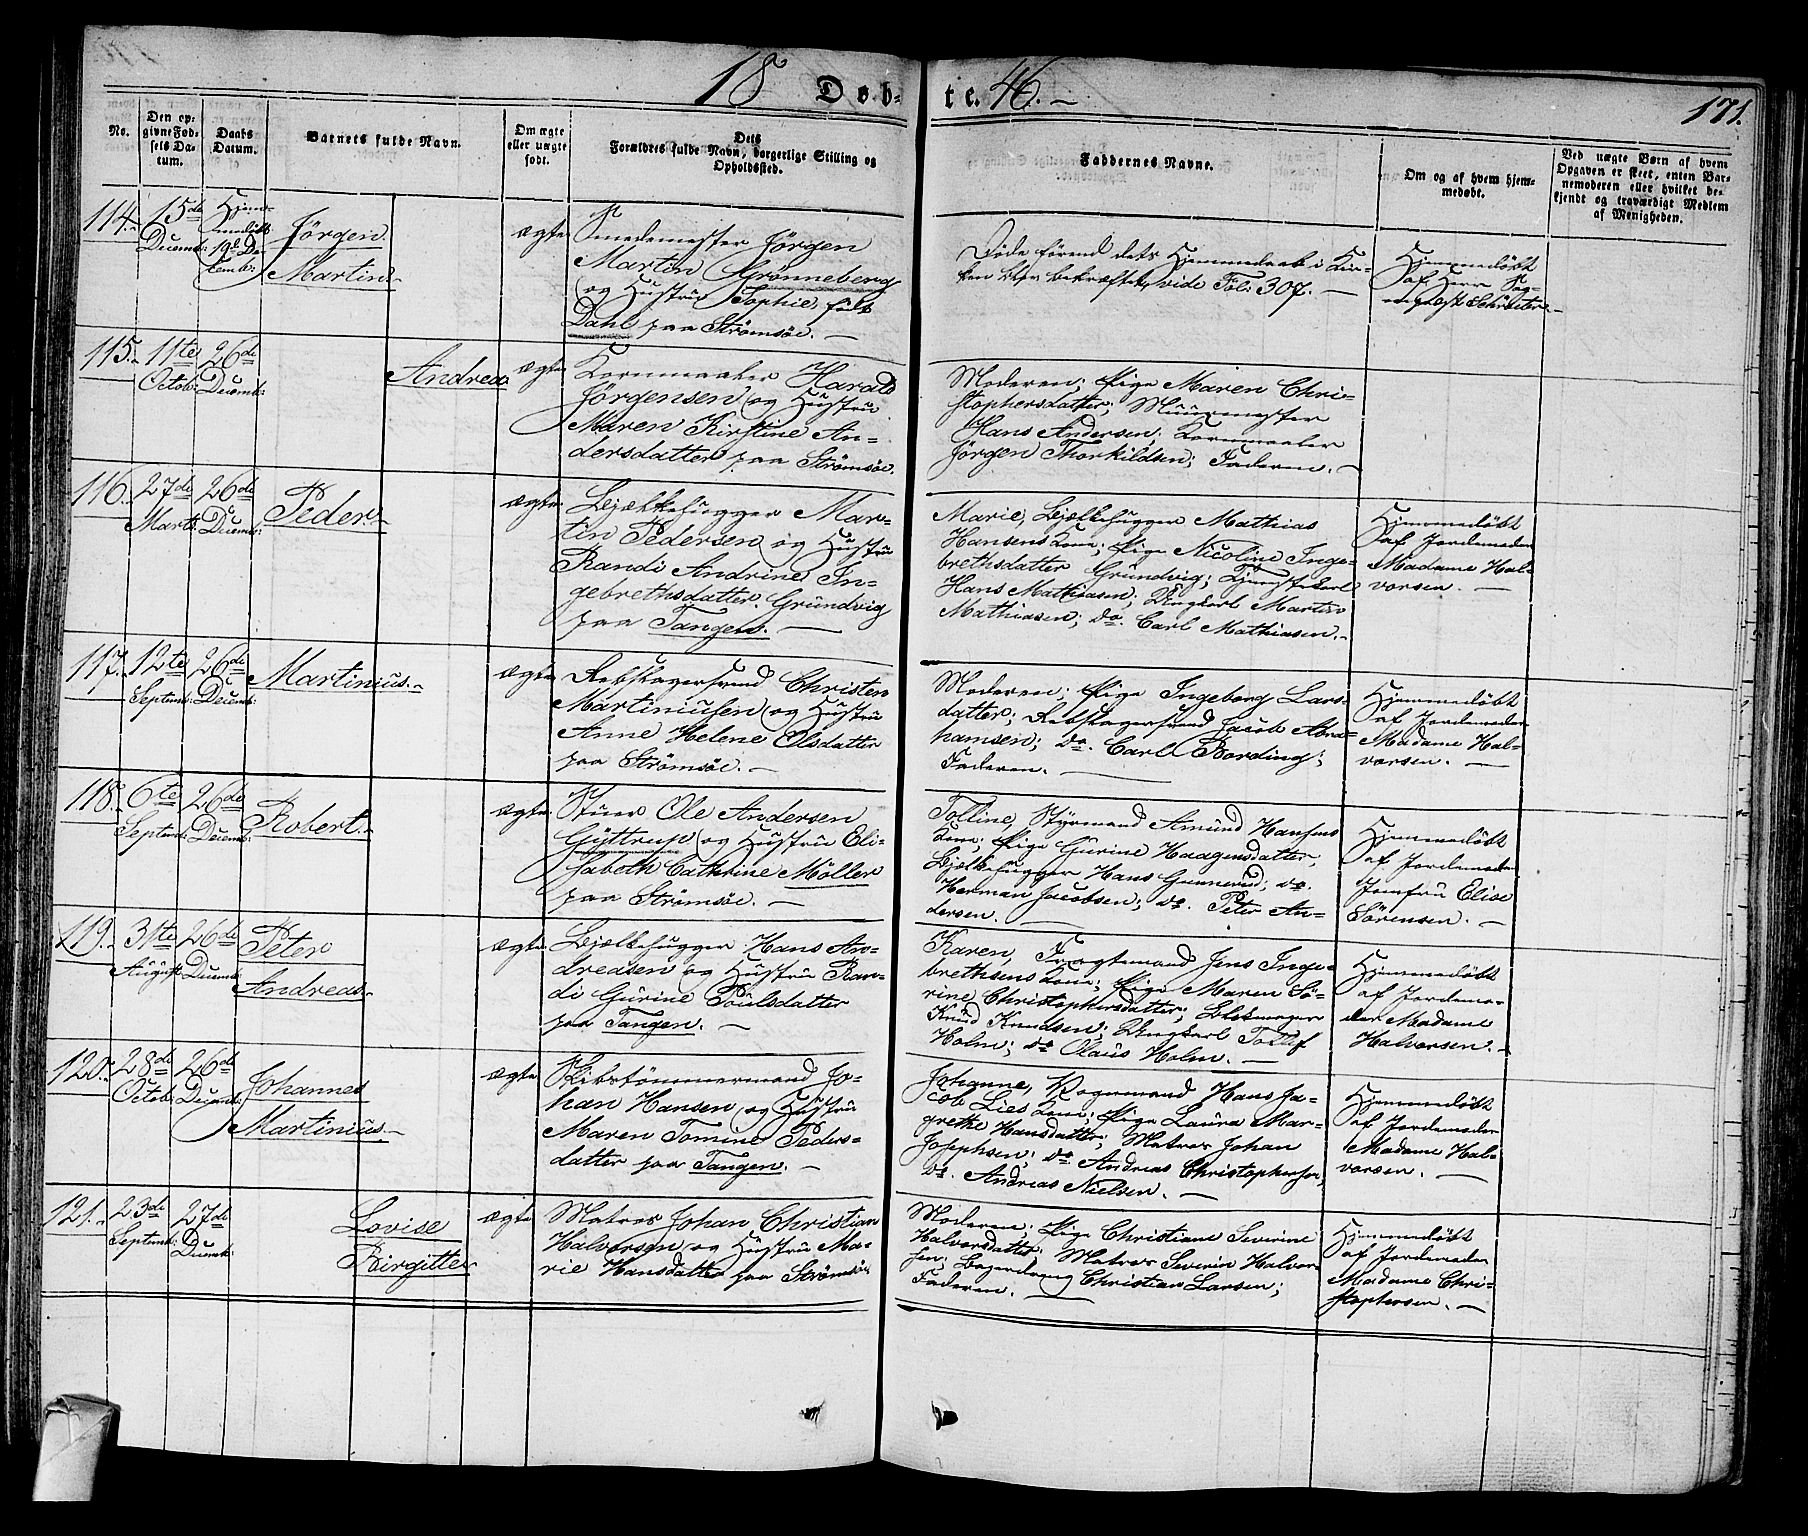 18 Døb-
te. 46.-
171.
No.
Den op-
givne Fød-
sels Da-
tum.
Daabs
Datum.
Barnets fulde Navn.
Om ægte
eller uægte
født.
Dets
Forældres fulde Navn, borgerlige Stilling og
Opholdssted.
Faddernes Navne.
Om og af hvem hjem-
medøbt.
Ved uægte Børn af hvem
Opgaven er skeet, enten Bar-
nemoderen eller hvilket be-
kjendt og troværdigt Medlem
af Menigheden.
114.
15de
Decemb:
Hjem-
medöbt
19de De-
cemb:
Jörgen
Martin
ægte
Smedemester Jörgen
Martin Grönneberg
og Hustrü Sophie, födt
Dahl paa Strömsöe.
Döde förend dets Hjemmedaab i Kir-
ken blev bekræftet, vide Fol: 307.
Hjemmedöbt
af Herr
Schröeter
115.
11te
Octob:
26de
Decemb:
Andrea
ægte
Kornmaaler Harald
Jörgensen og Hustrü
Maren Kirstine An-
dersdatter paa Strömsöe.
Moderen; Pige Maren Chri-
stophersdatter; Muurmester
Hans Andersen; Kornmaaler
Jörgen Thorkildsen; Faderen.
116.
27de
Marts
26de
Decemb:
Peder
ægte
Bjælkehugger Mar-
tin Pedersen og Hustrü
Randi Andrine In-
gebrethsdatter Gründvig
paa Tangen.
Marie, Bjælkehugger Mathias
Hansens Kone; Pige Nicoline Inge-
brethsdatter Gründvig; Ungkarl
Hans Mathiasen; Ungkarl Martin
Mathiasen; do. Carl Mathiasen.
Hjemmedöbt
af Jordemoder
Madame Hal-
vorsen.
117.
12te
Septemb:
26de
Decemb:
Martinius.
ægte
Rebslagersvend Christen
Martiniusen og Hustrü
Anne Helene Olsdatter
paa Strömsöe.
Moderen; Pige Ingeborg Lars-
datter; Rebslagersvend Jacob Abra-
hamsen; do. Carl Bording;
Faderen.
Hjemmedöbt
af Jordemoder
Madame Hal-
vorsen.
118.
6te
Septemb:
26de
Decemb:
Robert.
ægte
Stuer Ole Andersen
Gyttrup og Hustrü Eli-
sabeth Cathrine Möller
paa Strömsöe.
Tolline, Styrmand Amünd Hansens
Kone; Pige Gurine Haagensdatter;
Bjælkehugger Hans Gunnerud; do.
Herman Jacobsen; do. Peter An-
dersen.
Hjemmedöbt
af Jordemoder
Jomfrü Elise
Sörensen.
119.
31te
August
26de
Decemb:
Peter
Andreas
ægte
Bjælkehugger Hans An-
dreasen og Hustrü Ran-
di Gurine Poulsdatter
paa Tangen.
Karen, Fragtemand Jens Inge-
brethsens Kone; Pige Maren Sö-
rine Christophersdatter; Blokmager
Knud Knudsen; Ungkarl Tollef
Holm; do Olaus Holm.
Hjemmedöbt
af Jordemo-
der Madame
Halvorsen.
120.
28de
Octob:
26de
Decemb:
Johannes
Martinius
ægte
Skibstömmermand Jo-
han Hansen og Hustrü
Maren Tomine Peders-
datter paa Tangen.
Johanne, Vognmand Hans Ja-
cob Lies Kone; Pige Laura Mar-
grethe Hansdatter; Matros Johan
Josephsen; do Andreas Christophersen,
do. Andreas Nielsen.
Hjemmedöbt
af Jordemoder
Madame Hal-
vorsen.
121.
23de
Septemb:
27de
Decemb:
Lovise
Birgitte
ægte
Matros Johan Christian
Halvorsen og Hustrü Ma-
rie Hansdatter paa Strömsöe
Moderen; Pige Christiane Severine
Halvorsdatter; Matros Severin Halvor-
sen; Christian Larsen;
Faderen.
Hjemmedöbt
af Jordemoder
Madame Chri-
stophersen.